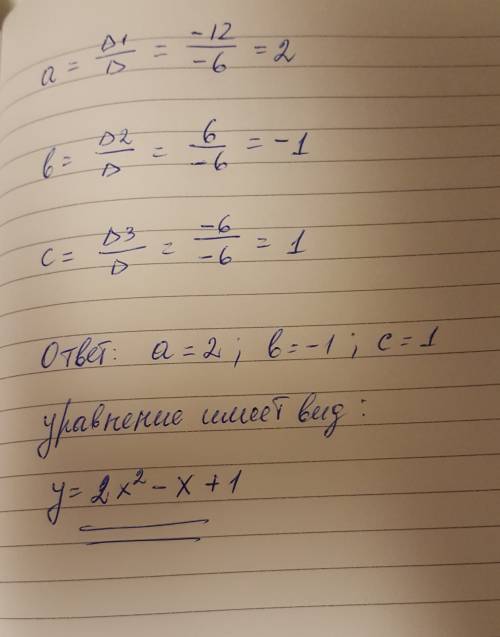 a = Δ1/Δ = -12/-6 = 2
b = Δ2/Δ = 6/-6 = -1
c = Δ3/Δ = -6/-6 = 1
Ответ: a = 2 ; b = -1 ; c = 1
уравнение имеет вид :
y = 2x² - x + 1